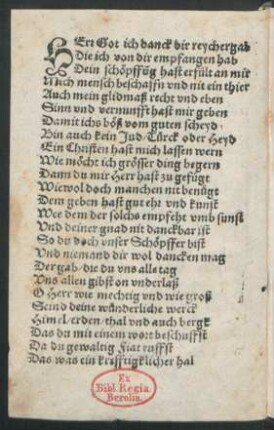 HErr Got ich danck dir reycher gab
Die ich von dir empfangen hab
Dein schöpffūg hast erfült an mir
Mich mensch beschaffn vnd nit ein thier
Auch mein glidmaß recht vnd eben
Sinn vnd vernunfft hast mir geben
Damit ichs böß vom guten scheyd
Bin auch kein Jud Türck oder Heyd
Ein Christen hast mich lassen wern
Wie möcht ich grösser ding begern
Dann du mir Herr hast zu gefügt
Wiewol doch manchen nit benügt
Dem geben hast gut eht vnd kunst
Wee dem der solchs empfeht vmb sunst
Vnd deiner gnad nit danckbar ist
So du doch vnser Schöpffer bist
Vnd niemand dir wol dancken mag
Der gab / die du vns alle tag
Vns allen gibst on vnderlaß
O Herr wie mechtig vnd wie groß
Seind deine wunderliche werck
Himel / erden / thal vnd auch bergk
Das du mit einem wort beschuffst
Da du gewaltig Fiat ruffst
Das was ein krefftigklicher hal
Ex
Bibl. Regia
Berolin.